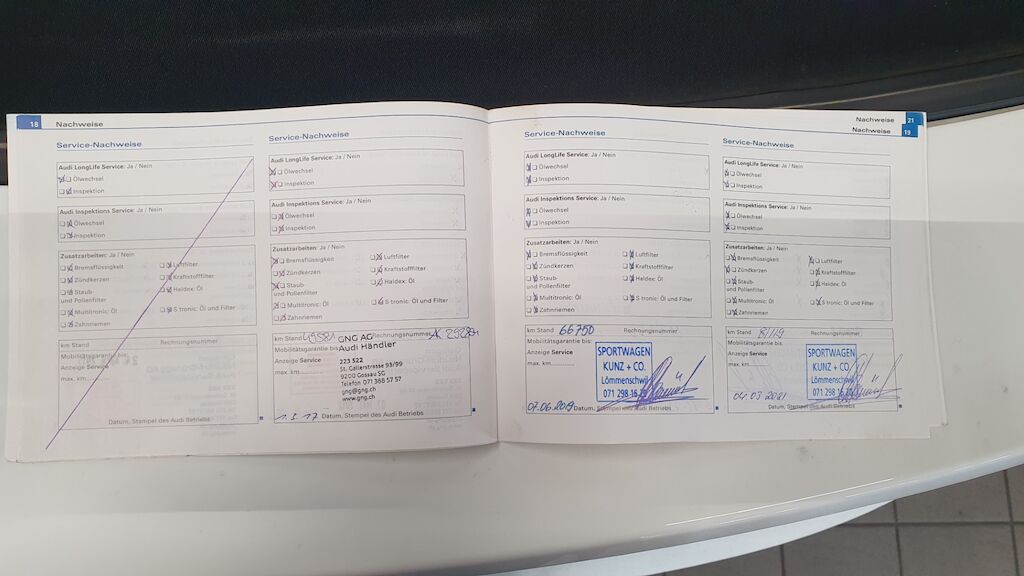 18 Nachweise
Service-Nachweise
Audi LongLife Service: Ja / Nein
Ölwechsel
Inspektion
Audi Inspektions Service: Ja / Nein
Ölwechsel
Inspektion
Zusatzarbeiten: Ja / Nein
Bremsflüssigkeit
Luftfilter
Zündkerzen
Kraftstofffilter
Staub-
und Pollenfilter
Haldex: Öl
Multitronic: Öl
S tronic: Öl und Filter
Zahnriemen
km Stand
Rechnungsnummer
Mobilitätsgarantie bis
Anzeige Service
max. km
Datum, Stempel des Audi Betriebs
Service-Nachweise
Audi LongLife Service: Ja / Nein
Ölwechsel
Inspektion
Audi Inspektions Service: Ja / Nein
Ölwechsel
Inspektion
Zusatzarbeiten: Ja / Nein
Bremsflüssigkeit
Luftfilter
Zündkerzen
Kraftstofffilter
Staub-
und Pollenfilter
Haldex: Öl
Multitronic: Öl
S tronic: Öl und Filter
Zahnriemen
km Stand
Rechnungsnummer
Mobilitätsgarantie bis
Anzeige Service
max. km
GNG AG
Audi Händler
223 522
St. Gallerstrasse 93/99
9200 Gossau SG
Telefon 071 388 57 57
gng@gng.ch
www.gng.ch
1.5.17
Datum, Stempel des Audi Betriebs
Nachweise 21
Nachweise 19
Service-Nachweise
Audi LongLife Service: Ja / Nein
Ölwechsel
Inspektion
Audi Inspektions Service: Ja / Nein
Ölwechsel
Inspektion
Zusatzarbeiten: Ja / Nein
Bremsflüssigkeit
Luftfilter
Zündkerzen
Kraftstofffilter
Staub-
und Pollenfilter
Haldex: Öl
Multitronic: Öl
S tronic: Öl und Filter
Zahnriemen
km Stand 66750
Rechnungsnummer
Mobilitätsgarantie bis
Anzeige Service
max. km
SPORTWAGEN
KUNZ + CO.
Lömmenschwil
071 298
07.06.2019
Datum, Stempel des Audi Betriebs
Service-Nachweise
Audi LongLife Service: Ja / Nein
Ölwechsel
Inspektion
Audi Inspektions Service: Ja / Nein
Ölwechsel
Inspektion
Zusatzarbeiten: Ja / Nein
Bremsflüssigkeit
Luftfilter
Zündkerzen
Kraftstofffilter
Staub-
und Pollenfilter
Haldex: Öl
Multitronic: Öl
S tronic: Öl und Filter
Zahnriemen
km Stand
Rechnungsnummer
Mobilitätsgarantie bis
Anzeige Service
max. km
SPORTWAGEN
KUNZ + CO.
Lömmenschwil
071 298
04.03.2021
Datum, Stempel des Audi Betriebs